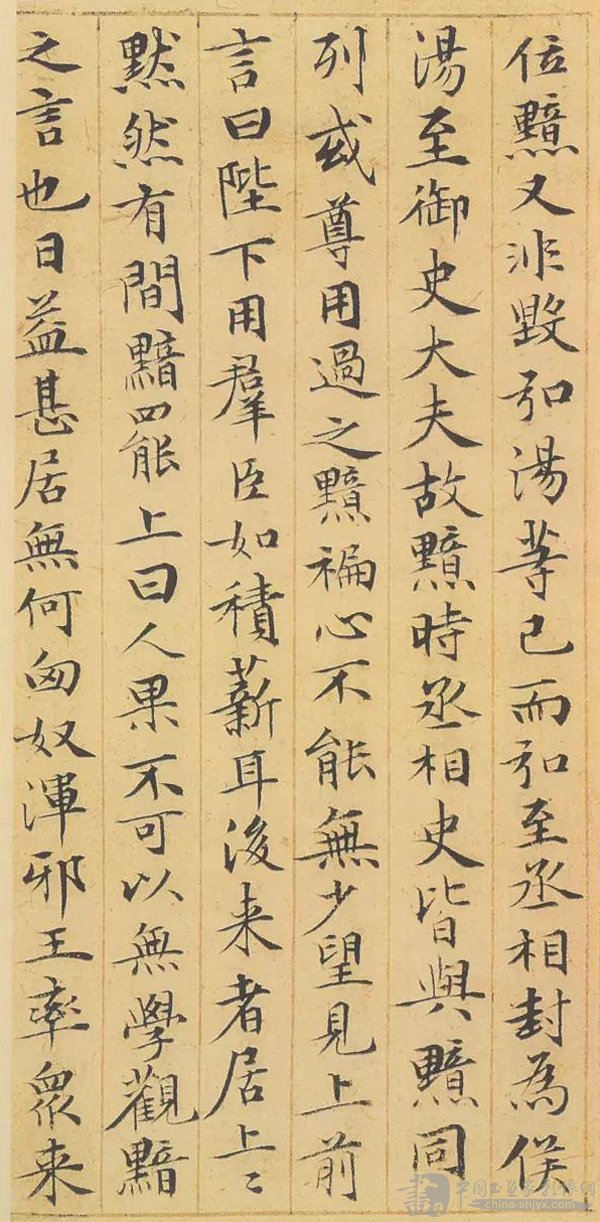 位黯又非毀弘湯等已而弘至丞相封為侯
湯至御史大夫故黯時丞相史皆與黯同
列或尊用過之黯褊心不能無少望見上前
言曰陛下用羣臣如積薪耳後来者居上〻
黙然有間黯罷上曰人果不可以無學觀黯
之言也日益甚居無何匈奴渾邪王率眾来
china-shjyx.com